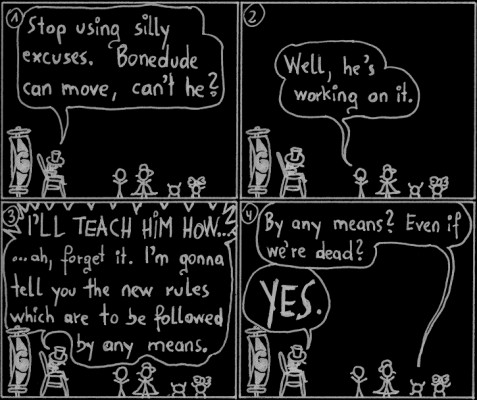 1
Stop using silly
excuses. Bonedude
can move, can't he?
2
Well, he's
working on it.
3
I'LL TEACH HIM HOW...
...ah, forget it. I'm gonna
tell you the new rules
which are to be followed
by any means.
4
By any means? Even if
we're dead?
YES.